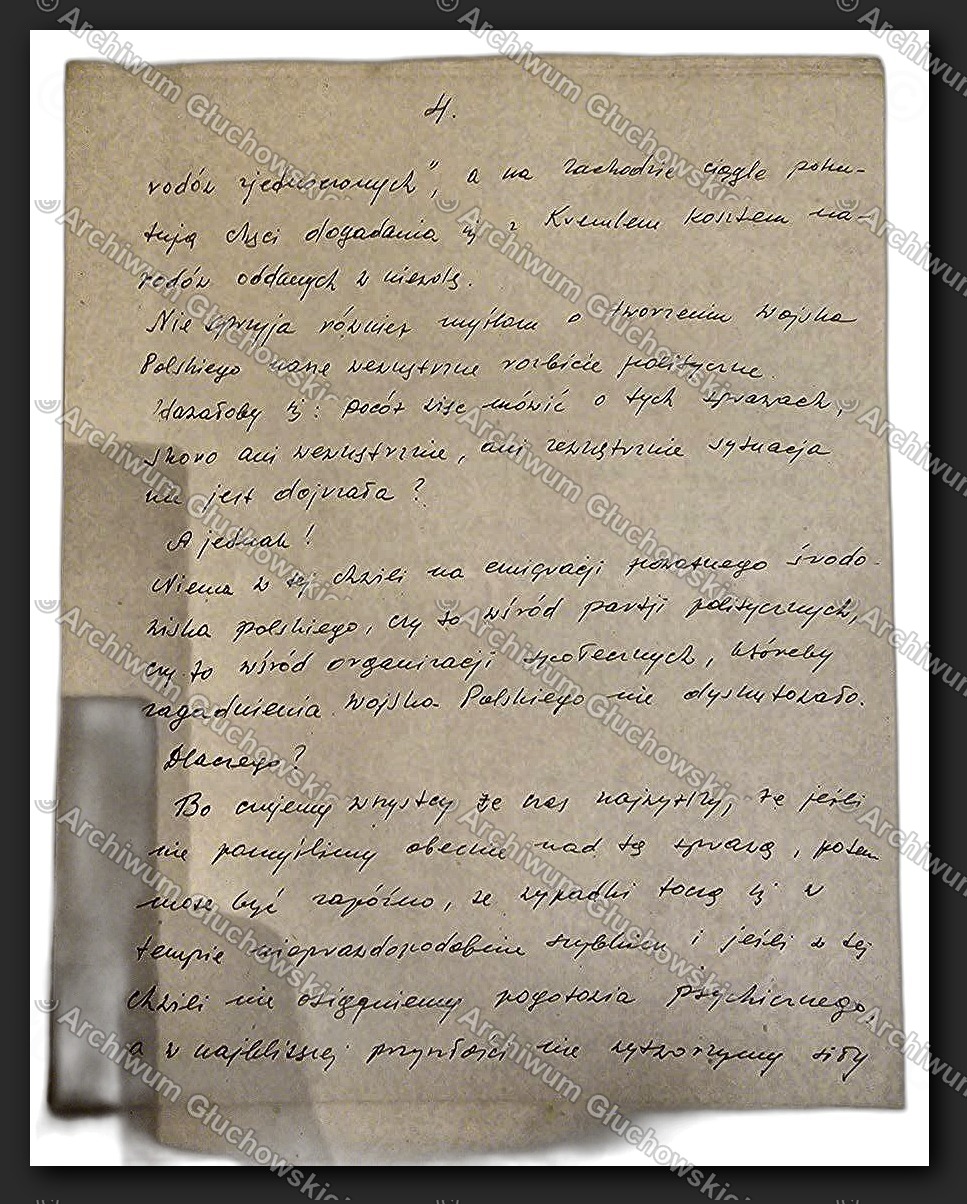 4.
rodów zjednoczonych", a na zachodzie ciągle poku-
tują chęci dogadania się z Kremlem kosztem na-
rodów oddanych w niewolę.
Nie sprzyja również myślom o tworzeniu Wojska
Polskiego nasze wewnętrzne rozbicie polityczne.
Zdawałoby się: pocóż więc mówić o tych sprawach,
skoro ani wewnętrznie, ani zewnętrznie sytuacja
nie jest dojrzała?
A jednak!
Niema w tej chwili na emigracji poważnego środo-
wiska polskiego, czy to wśród partji politycznych,
czy to wśród organizacji społecznych, któreby
zagadnienia Wojska Polskiego nie dyskutowało.
Dlaczego?
Bo czujemy wszyscy że czas najwyższy, że jeśli
nie pomyślimy obecnie nad tą sprawą, potem
może być zapóźno, że wypadki toczą się w
tempie nieprawdopodobnie szybkim i jeśli w tej
chwili nie osiągniemy pogotowia psychicznego,
a w najbliższej przyszłości nie wytworzymy siły
© Archiwum Głuchowskich